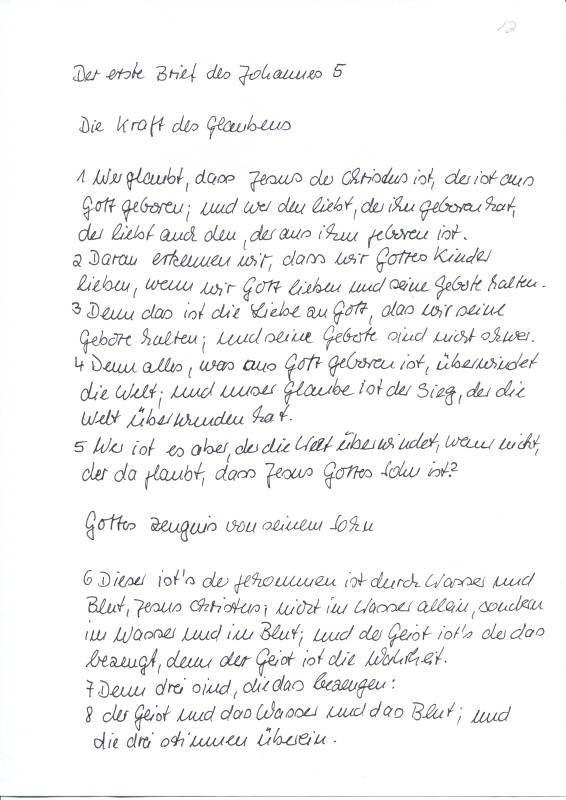 12
Der erste Brief des Johannes 5
Die Kraft des Glaubens
1 Wer glaubt, dass Jesus der Christus ist, der ist aus
Gott geboren; und wer den liebt, der ihn geboren hat,
der liebt auch den, der aus ihm geboren ist.
2 Daran erkennen wir, dass wir Gottes Kinder
lieben, wenn wir Gott lieben und seine Gebote halten.
3 Denn das ist die Liebe an Gott, das wir seine
Gebote halten; und seine Gebote sind nicht schwer.
4 Denn alles, was aus Gott geboren ist, überwindet
die Welt; und unser Glaube ist der Sieg, der die
Welt überwunden hat.
5 Wer ist es aber, der die Welt überwindet, wenn nicht,
der da glaubt, dass Jesus Gottes Sohn ist?
Gottes Zeugnis von seinem Sohn
6 Dieser ist's der gekommen ist durch Wasser und
Blut, Jesus Christus; nicht im Wasser allein, sondern
im Wasser und im Blut; und der Geist ist's der das
bezeugt, denn der Geist ist die Wahrheit.
7 Denn drei sind, die das bezeugen:
8 der Geist und das Wasser und das Blut; und
die drei stimmen überein.